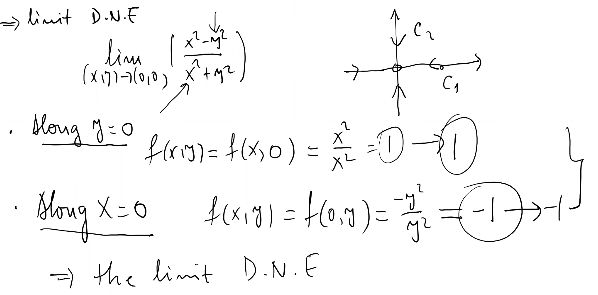 ⇒ limit D.N.E
lim (x,y)→(0,0) ( x²-y² / x²+y² )
C₂
C₁
· Along y=0 f(x,y) = f(x,0) = x²/x² = 1 → 1
· Along x=0 f(x,y) = f(0,y) = -y²/y² = -1 → -1
⇒ the limit D.N.E